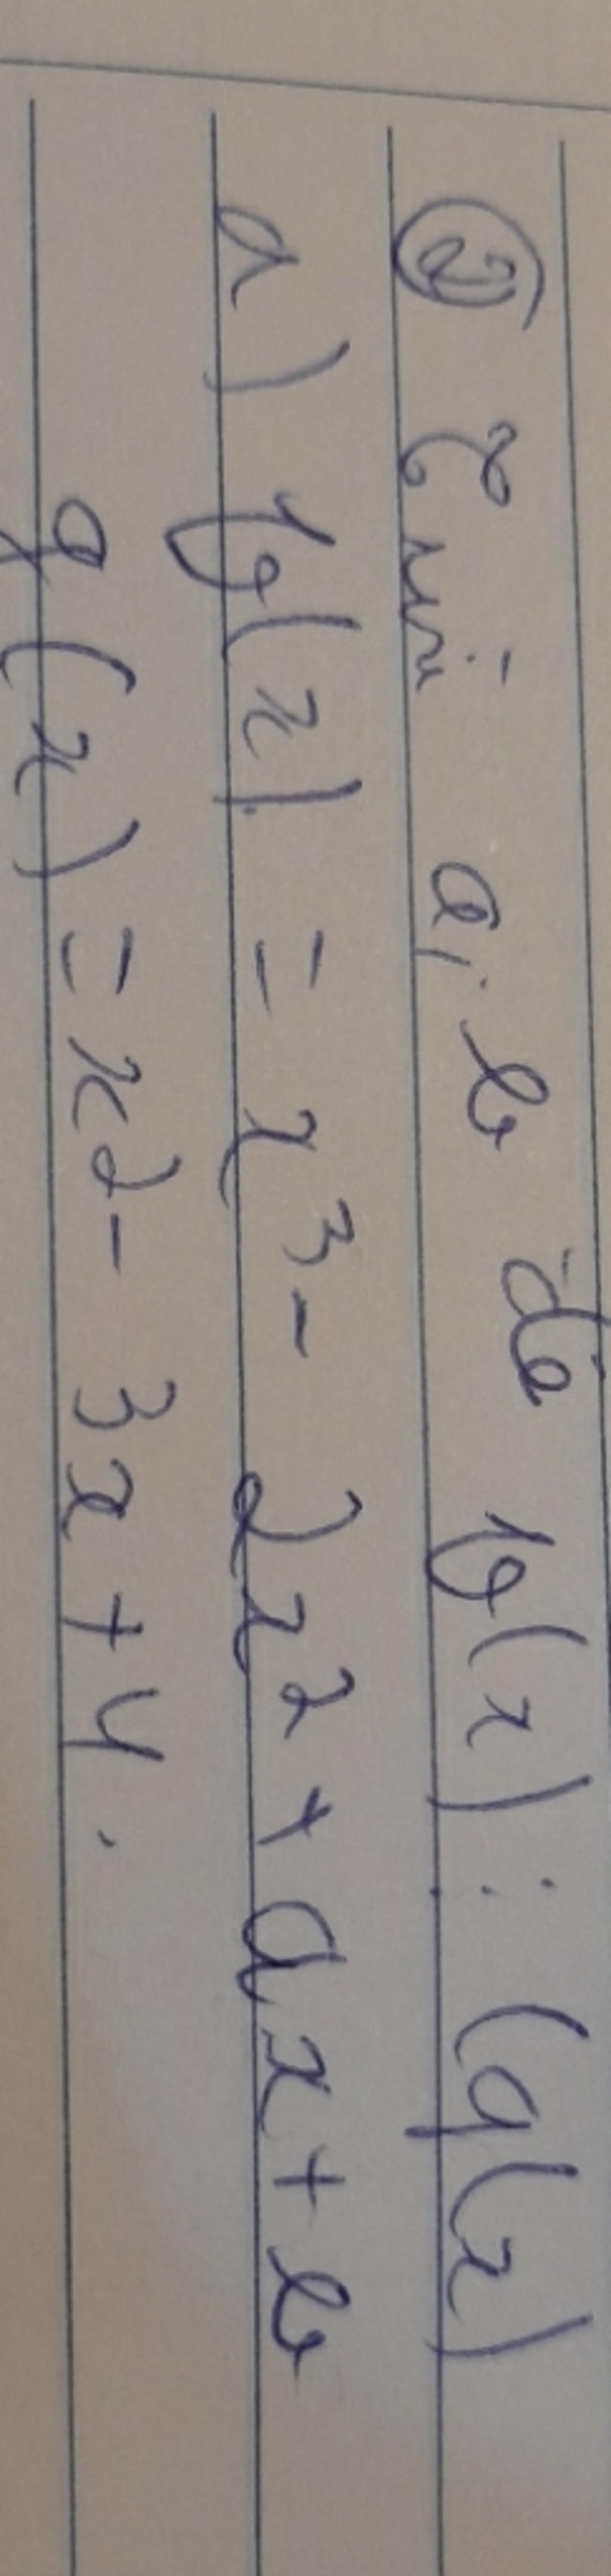 ② Tìm a, b để f(x) ⋮ (g(x)
a) f(x) = x³ - 2x² + ax + b
g(x) = x² - 3x + 4.